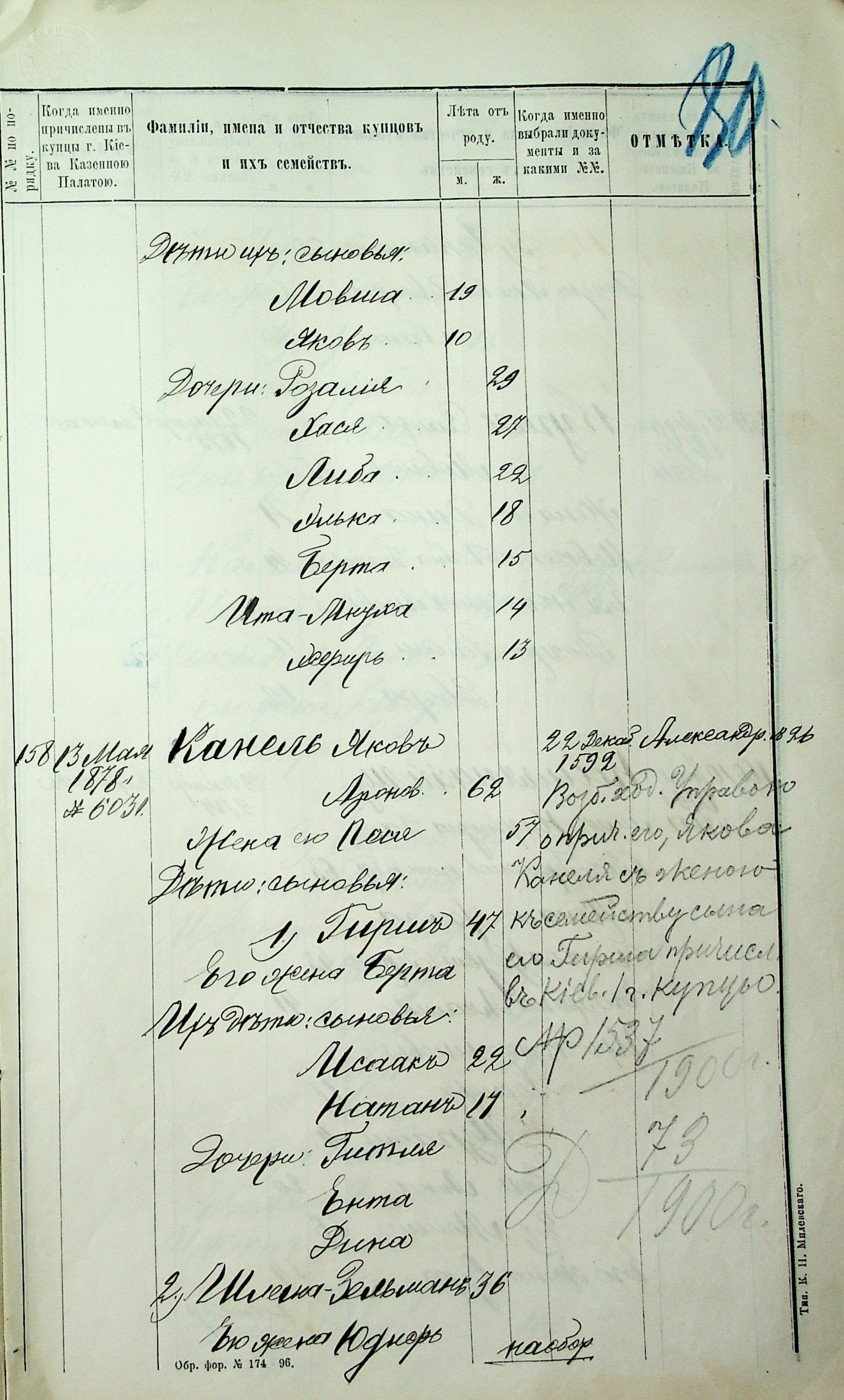 № № по порядку.
Когда именно
причислены въ
купцы г. Кіе-
ва Казенною
Палатою.
Фамиліи, имена и отчества купцовъ
и ихъ семействъ.
Лѣта отъ
роду.
м. ж.
Когда именно
выбрали доку-
менты и за
какими №№.
ОТМѢТКА.
Дѣти ихъ: сыновья:
Мовша 19
Яковъ 10
Дочери: Розалія 29
Хася 27
Либа 22
Элька 18
Берта 15
Ита-Мнуха 14
Эсфирь 13
158 13 Мая Канель Яковъ 22 Декаб. Александр. 1896
1878 г. 1592
№ 6031. Аронов. 62 Возб. ход. Управою
Жена его Пося 57 о прич. его, Якова
Дѣти: сыновья: Канеля съ женою
1) Гиршъ 47 къ семейству сына
Его жена Берта его Гирша причисл.
Ихъ дѣти: сыновья: въ Кіев. 1 г. купцы.
Исаакъ 22 1537
1900 г.
Натанъ 17
Дочери: Гитля 73
1900 г.
Ента
Дина
2) Шлема-Зельманъ 36
Его жена Юдифь наобор
Обр. фор. № 174 — 96.
Тип. К. Н. Милевскаго.